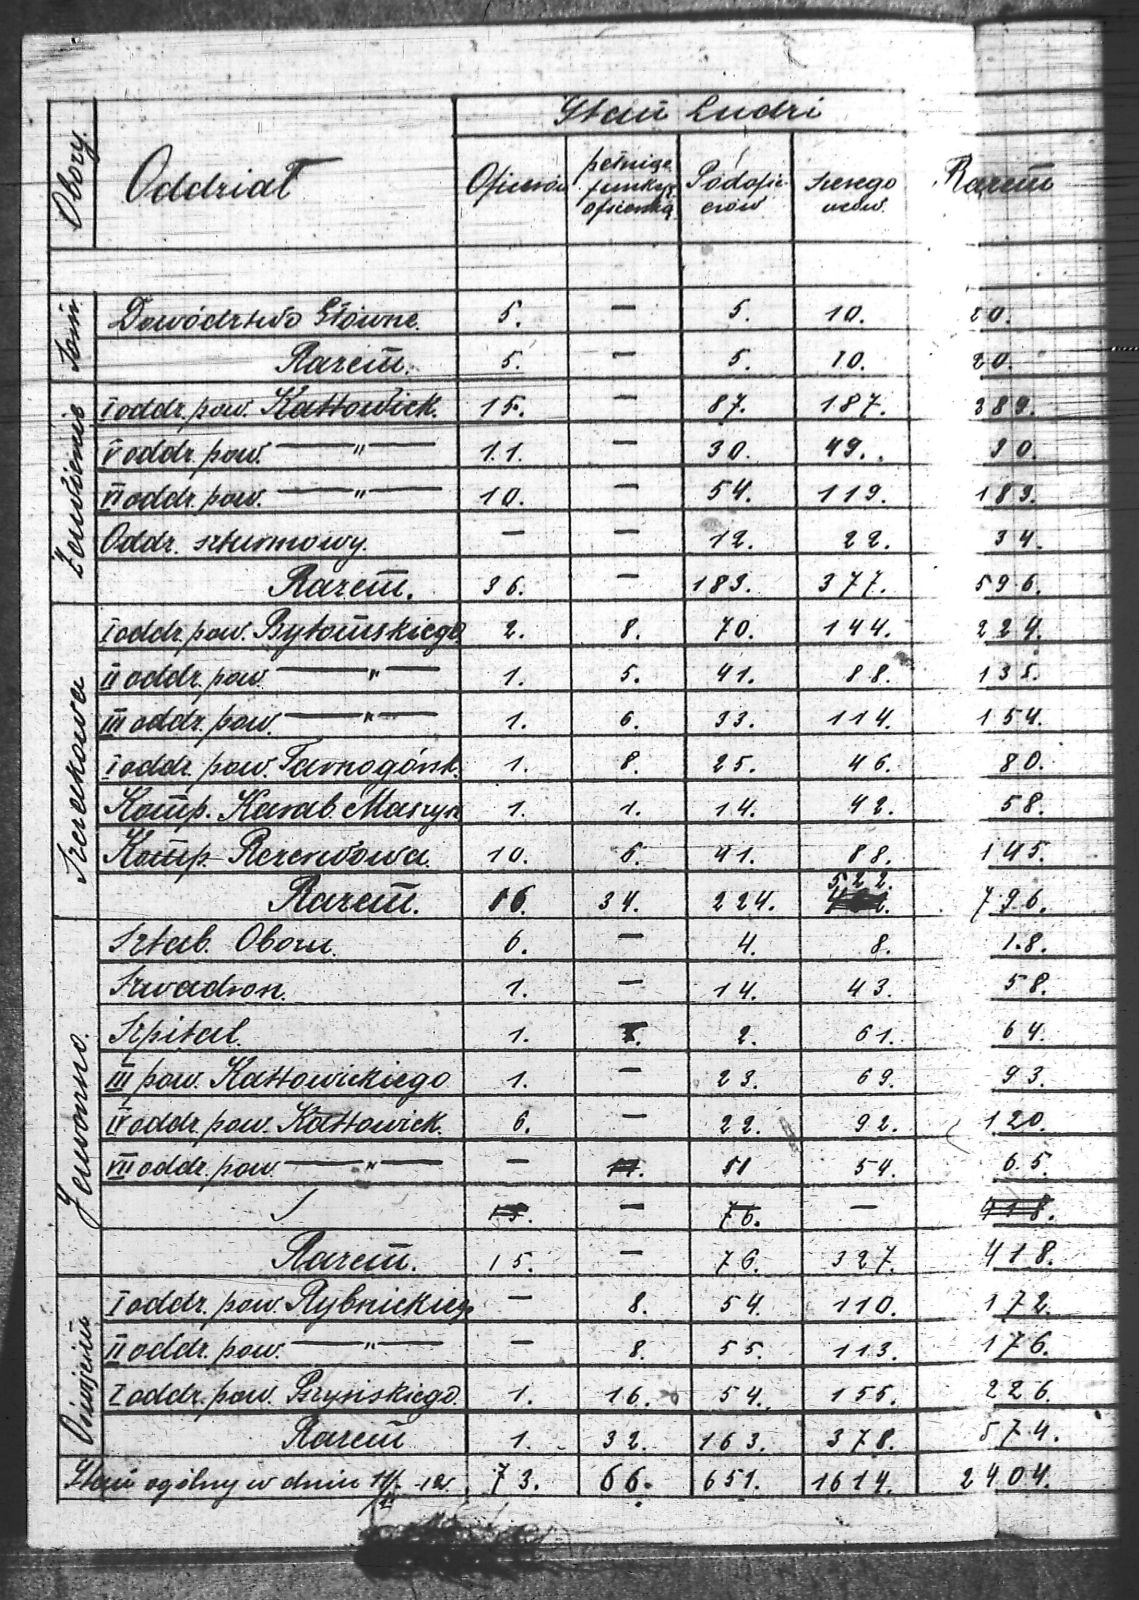 Stan Ludzi
Obozy. Oddział Oficerów pełniąc. funkcję oficerską Podoficerów Szeregowców. Razem
Dowództwo Główne. 5. — 5. 10. 20.
Razem. 5. — 5. 10. 20.
I oddz. pow. Kattowick. 15. — 87. 187. 289.
V oddz. pow. —"— 11. — 30. 49. 90.
VI oddz. pow. —"— 10. — 54. 119. 183.
Oddz. szturmowy. — — 12. 22. 34.
Razem. 36. — 183. 377. 596.
I oddz. pow. Bytomskiego 2. 8. 70. 144. 224.
II oddz. pow. —"— 1. 5. 41. 88. 135.
III oddz. pow. —"— 1. 6. 33. 114. 154.
I oddz. pow. Tarnogórsk. 1. 8. 25. 46. 80.
Komp. Karab. Maszyn 1. 1. 14. 42. 58.
Komp. Rezerwowa. 10. 6. 41. 88. 145.
522.
Razem. 16. 34. 224. 796.
Szczakowa
Sztab. Obozu. 6. — 4. 8. 18.
Szwadron. 1. — 14. 43. 58.
Szpital. 1. 2. 61. 64.
III pow. Kattowickiego 1. — 23. 69. 93.
IV oddz. pow. Kattowick. 6. — 22. 92. 120.
VII oddz. pow. —"— — 11. 11 54. 65.
15. — 76. — 918.
Razem. 15. — 76. 327. 418.
Jaworzno.
I oddz. pow. Rybnickieg — 8. 54. 110. 172.
II oddz. pow. —"— — 8. 55. 113. 176.
I oddz. pow. Pszyńskiego. 1. 16. 54. 155. 226.
Razem 1. 32. 163. 378. 574.
Oświęcim
Stan ogólny w dniu 73. 66. 651. 1614. 2404.